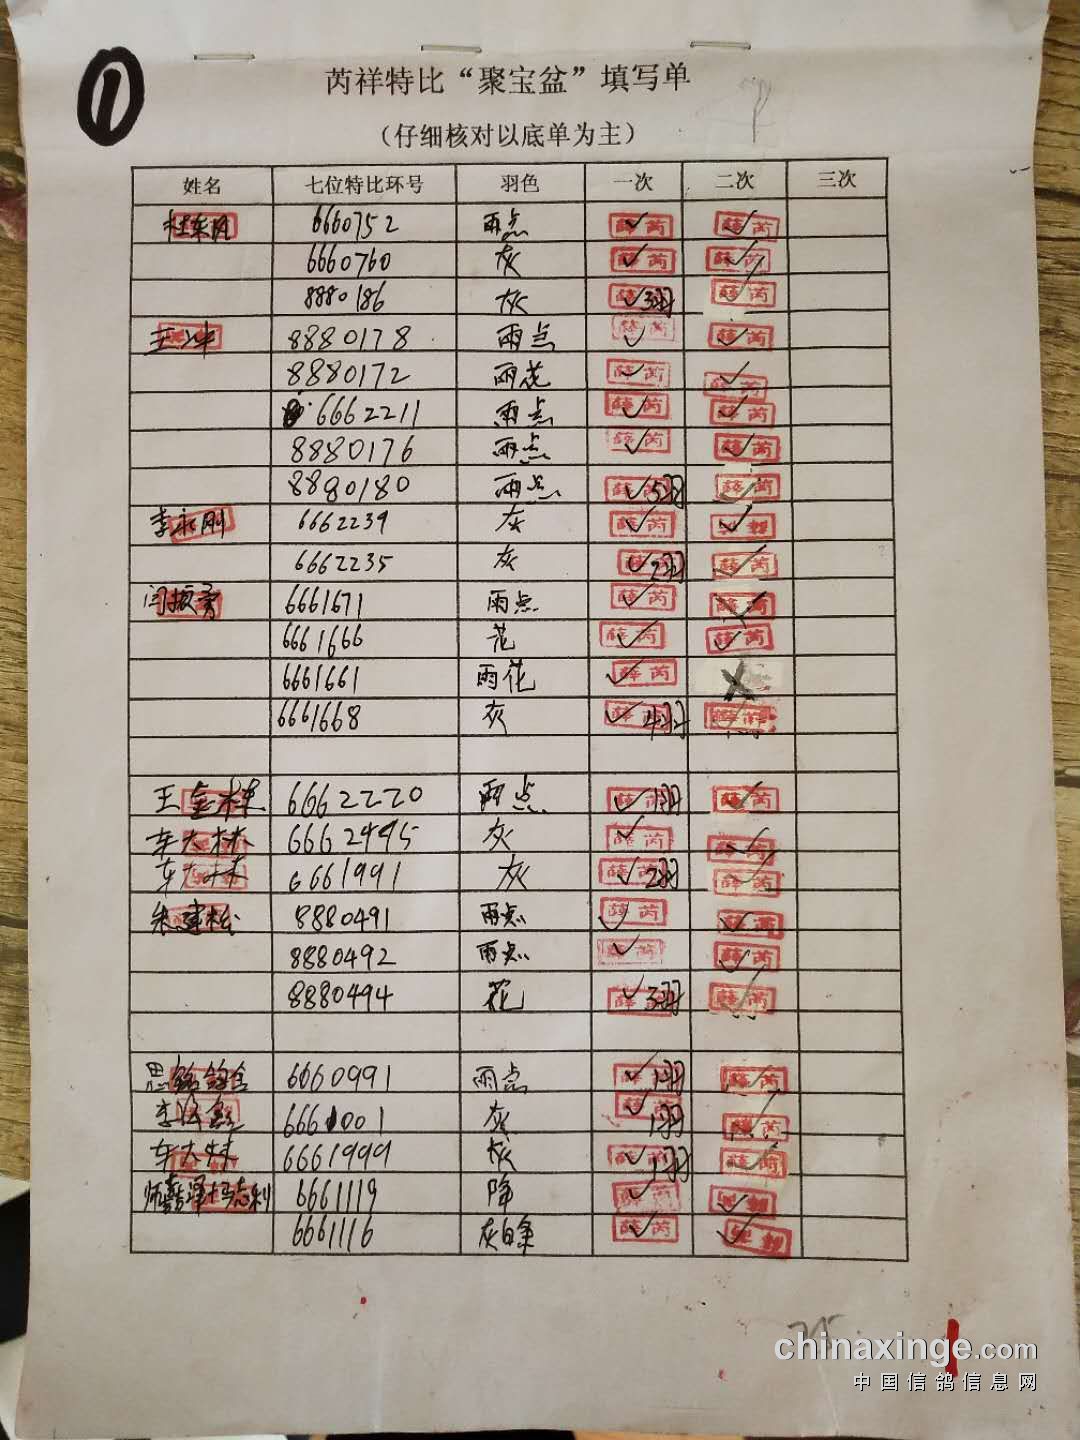 ①
芮祥特比“聚宝盆”填写单
（仔细核对以底单为主）
姓名 七位特比环号 羽色 一次 二次 三次
6660752 雨点 薛芮 薛芮
6660760 灰 薛芮 薛芮
8880186 灰 3羽 薛芮
王冲 8880178 雨点 薛芮 薛芮
8880172 雨花 薛芮 薛芮
6662211 雨点 薛芮 薛芮
8880176 雨点 薛芮 薛芮
8880180 雨点 5羽 薛芮
李永刚 6662239 灰 薛芮
6662235 灰 2羽 薛芮
闫振勇 6661671 雨点 薛芮 薛芮
6661666 花 薛芮 薛芮
6661661 雨花 薛芮
6661668 灰 4羽
王金栋 6662220 雨点 1羽 薛芮
车大林 6662495 灰 薛芮 薛芮
车大林 6661991 灰 2羽 薛芮
朱建松 8880491 雨点 薛芮 薛芮
8880492 雨点 薛芮 薛芮
8880494 花 3羽 薛芮
思铭鸽舍 6660991 雨点 1羽 薛芮
6661001 灰 1羽 薛芮
车大林 6661999 灰 1羽 薛芮
6661119 降 薛芮
6661116 灰白条 薛芮
chinaxinge.com
中国信鸽信息网